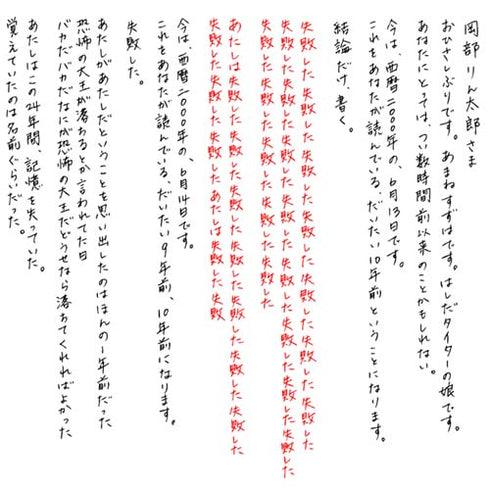 岡部りん太郎さま
おひさしぶりです。あまねすずはです。はしだタイターの娘です。
あなたにとっては、つい数時間前以来のことかもしれない。
今は、西暦二〇〇〇年の、6月13日です。
これをあなたが読んでいる、だいたい10年前ということになります。
結論だけ、書く。
失敗した失敗した失敗した失敗した失敗した失敗した失敗した失敗した失敗した
失敗した失敗した失敗した失敗した失敗した失敗した失敗した失敗した失敗した失敗した
失敗した失敗した失敗した失敗した失敗した失敗した
あたしは失敗した失敗した失敗した失敗した失敗した失敗した失敗した失敗した
失敗した失敗した失敗した失敗したあたしは失敗した失敗
今は、西暦二〇〇〇年の、6月14日です。
これをあなたが読んでいる、だいたい9年前、10年前になります。
失敗した。
あたしがあたしだということを思い出したのはほんの1年前だった
恐怖の大王が落ちるとか言われてた日
バカだバカだなにが恐怖の大王だどうせなら落ちてくれればよかった
あたしはこの24年間、記憶を失っていた。
覚えていたのは名前ぐらいだった。